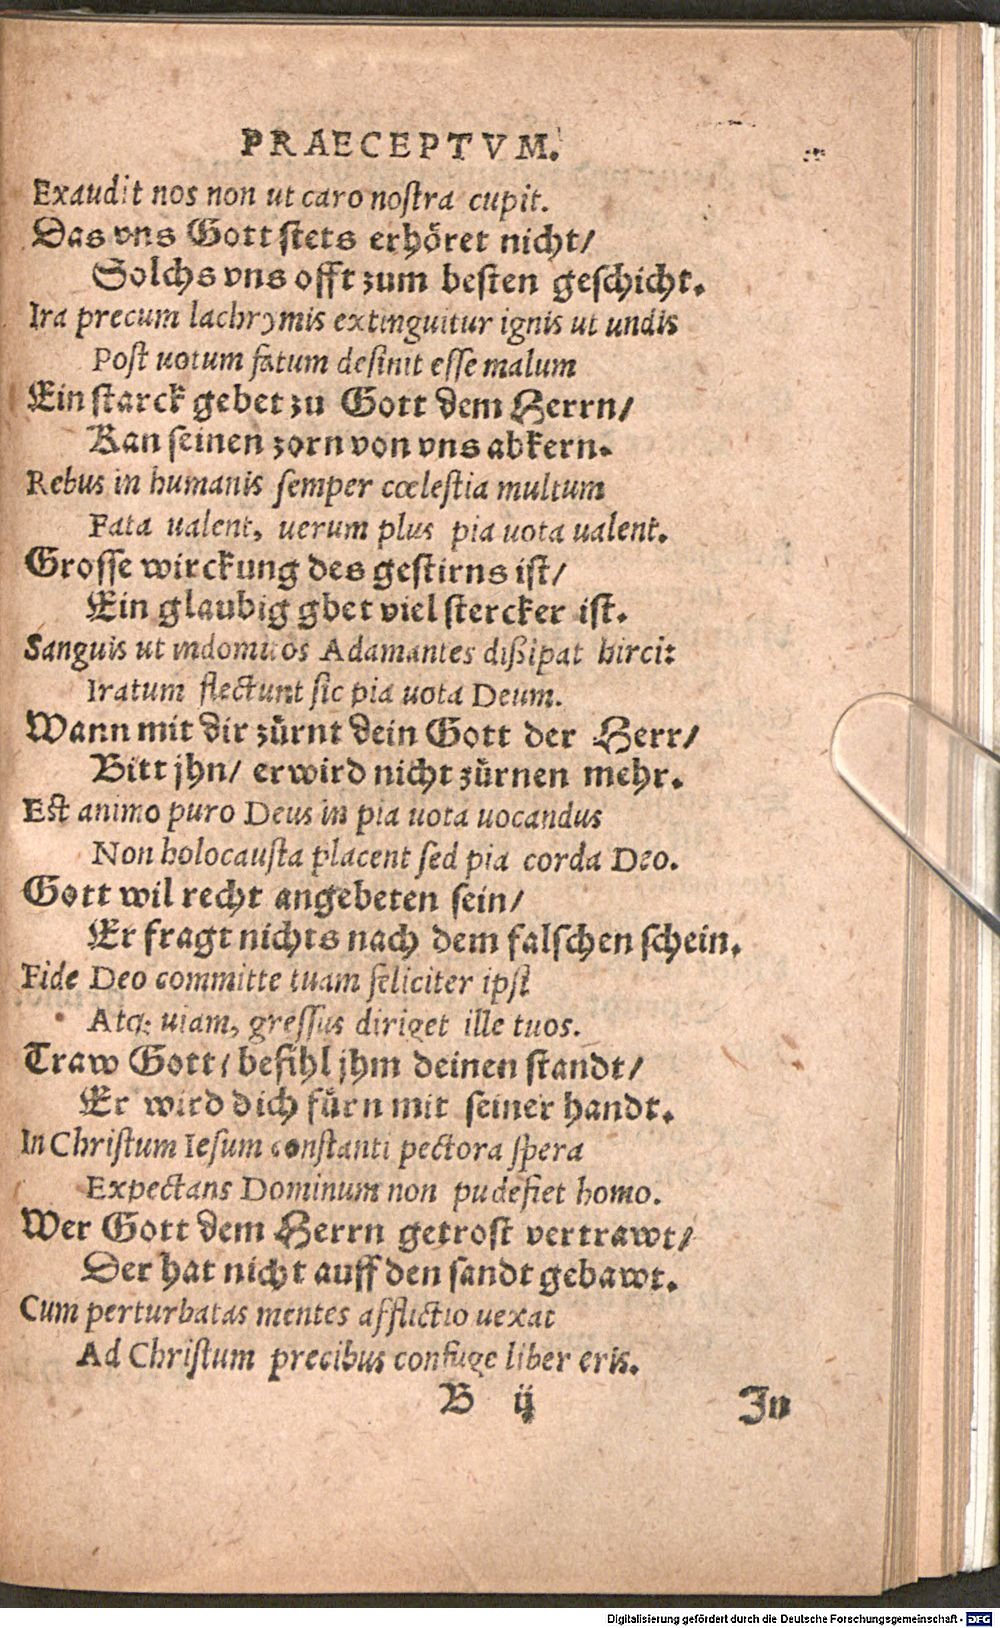 PRAECEPTVM.
Exaudit nos non ut caro nostra cupit.
Das vns Gott stets erhöret nicht/
Solchs vns offt zum besten geschicht.
Ira precum lachrymis extinguitur ignis ut undis
Post uotum fatum desinit esse malum
Ein starck gebet zu Gott dem Herrn/
Kan seinen zorn von vns abkern.
Rebus in humanis semper cœlestia multum
Fata ualent, uerum plus pia uota ualent.
Grosse wirckung des gestirns ist/
Ein glaubig gbet viel stercker ist.
Sanguis ut indomitos Adamantes dißipat hirci:
Iratum flectunt sic pia uota Deum.
Wann mit dir zürnt dein Gott der Herr/
Bitt jhn/ er wird nicht zürnen mehr.
Est animo puro Deus in pia uota uocandus
Non holocausta placent sed pia corda Deo.
Gott wil recht angebeten sein/
Er fragt nichts nach dem falschen schein.
Fide Deo committe tuam feliciter ipsi
Atq; uiam, gressus diriget ille tuos.
Traw Gott/ befihl jhm deinen standt/
Er wird dich fürn mit seiner handt.
In Christum Iesum constanti pectora spera
Expectans Dominum non pudefiet homo.
Wer Gott dem Herrn getrost vertrawt/
Der hat nicht auff den sandt gebawt.
Cum perturbatas mentes afflictio uexat
Ad Christum precibus confuge liber eris.
B ij
In
Digitalisierung gefördert durch die Deutsche Forschungsgemeinschaft - DFG